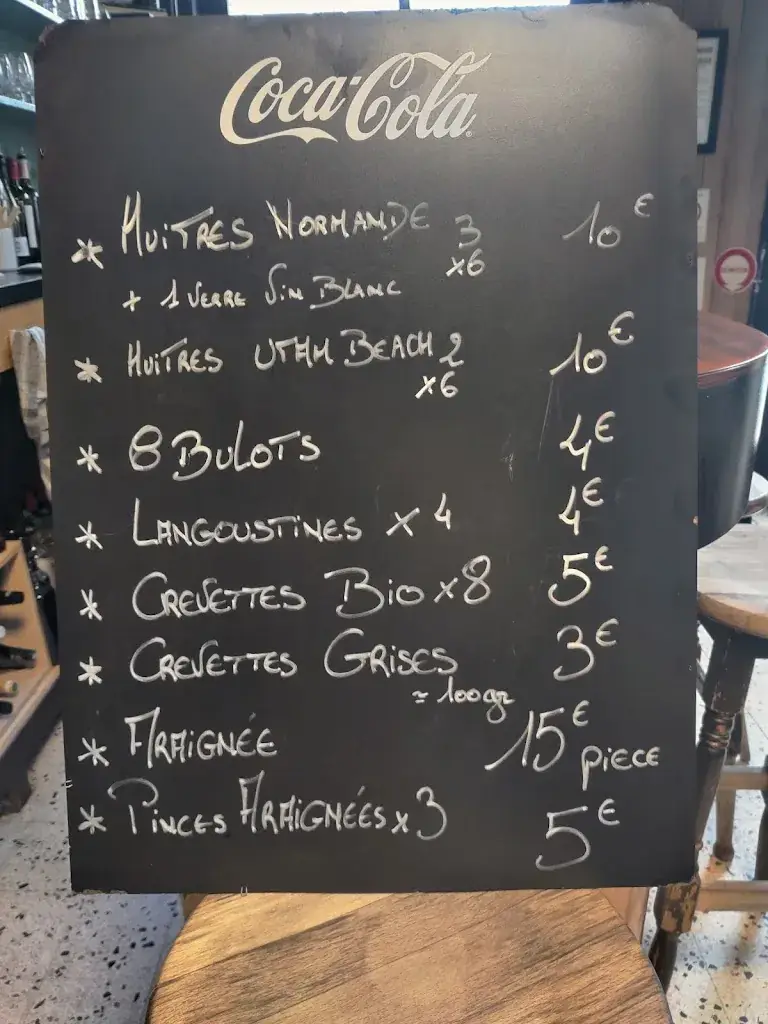 Coca-Cola
* HUITRES NORMANDE 3 10€
x6
+ 1 VERRE VIN BLANC
* HUITRES UTAH BEACH 2 10€
x6
* 8 BULOTS 4€
* LANGOUSTINES x 4 4€
* CREVETTES BIO x8 5€
* CREVETTES GRISES 3€
≃ 100gr
* ARAIGNÉE 15€ PIECE
* PINCES ARAIGNÉES x 3 5€